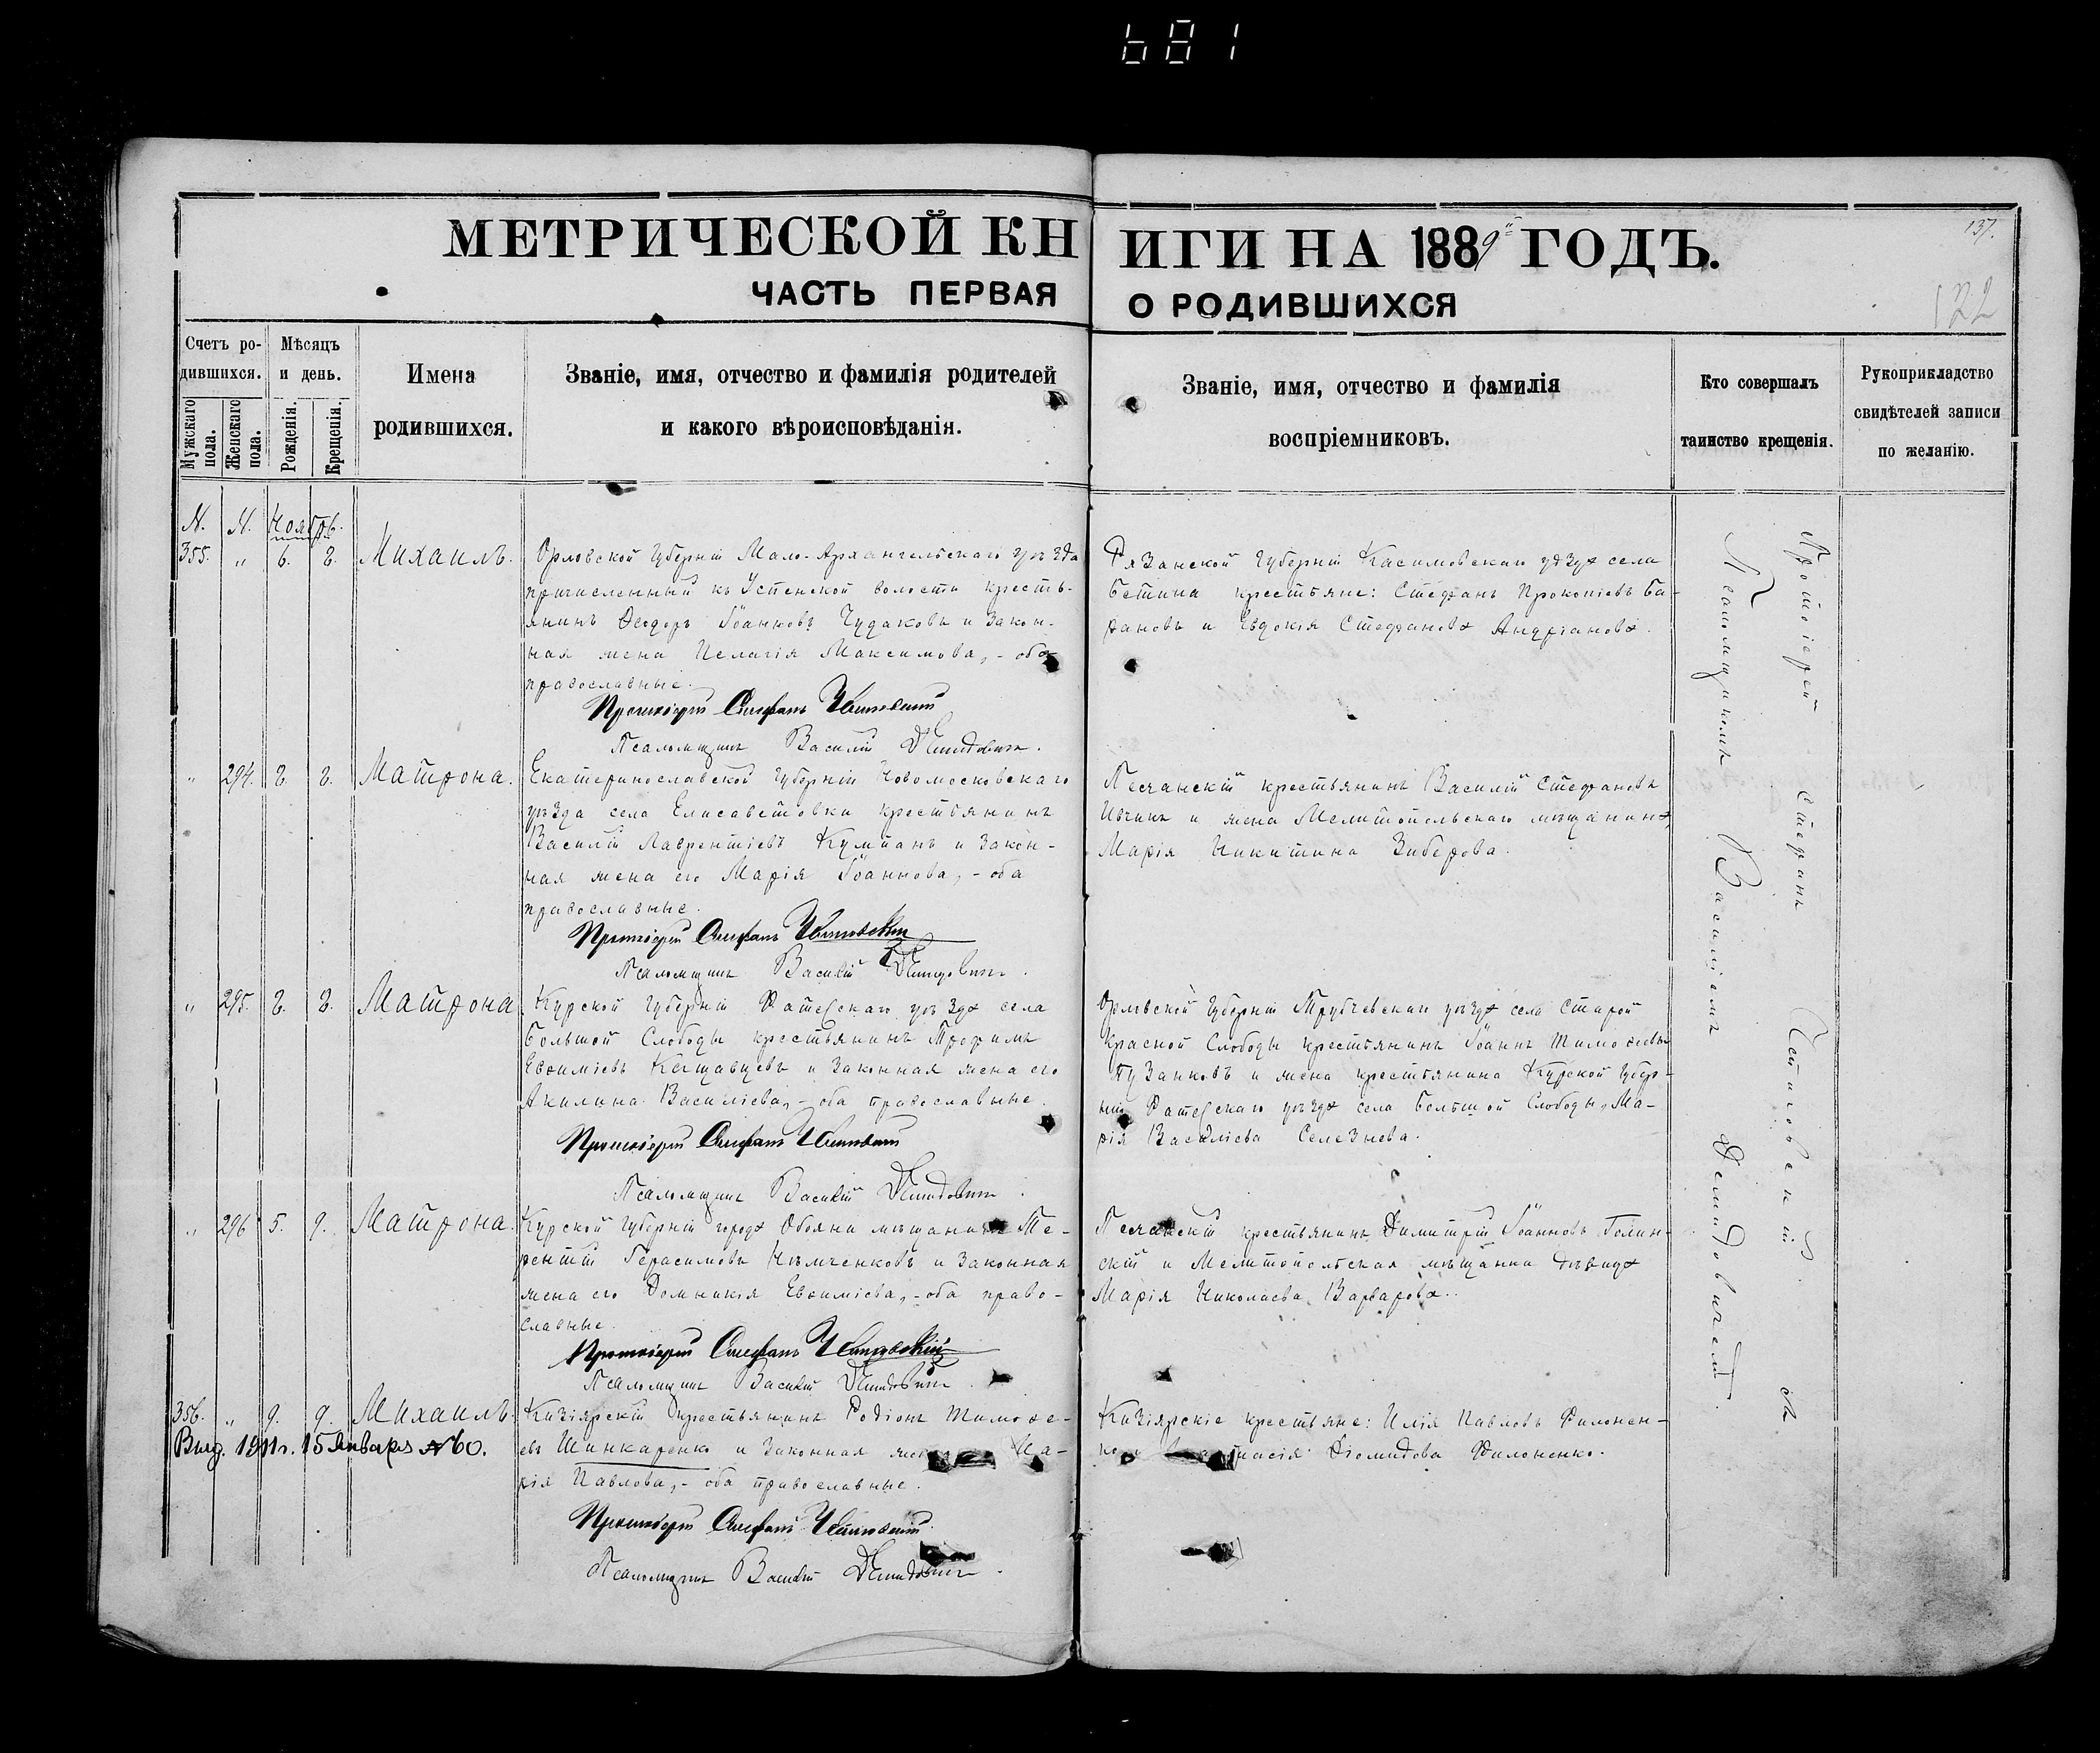 681
МЕТРИЧЕСКОЙ КНИГИ НА 1889й ГОДЪ.
137.
ЧАСТЬ ПЕРВАЯ О РОДИВШИХСЯ
122
Счетъ ро-
дившихся.
Мужскаго пола.
Женскаго пола.
Мѣсяцъ
и день.
Рожденія.
Крещенія.
Имена
родившихся.
Званіе, имя, отчество и фамилія родителей
и какого вѣроисповѣданія.
Званіе, имя, отчество и фамилія
воспріемниковъ.
Кто совершалъ
таинство крещенія.
Рукоприкладство
свидѣтелей записи
по желанію.
М. М. Ноябрь.
355. " 6. 8. Михаилъ.
Орловской губерніи Мало-Архангельскаго уѣзда
причисленный къ Успенской волости кресть-
янинъ Ѳеодоръ Іоанновъ Чудаковъ и закон-
ная жена Пелагія Максимова, - оба
православные.
Протоіерей Стефанъ
Псаломщикъ Василій Демидовичъ.
Рязанской губерніи Касимовскаго уѣзда села
Бетина крестьяне: Стефанъ Прокопіевъ Ба-
рановъ и Евдокія Стефанова Андріанова.
" 294. 8. 8. Матрона.
Екатеринославской губерніи Новомосковскаго
уѣзда села Елисаветовки крестьянинъ
Василій Лаврентіевъ Кумпанъ и закон-
ная жена его Марія Іоаннова, - оба
православные.
Протоіерей Стефанъ
Псаломщикъ Василій Демидовичъ.
Песчанскій крестьянинъ Василій Стефановъ
Ивчинъ и жена Мелитопольскаго мѣщанина,
Марія Никитина Зиберова.
" 295. 8. 8. Матрона.
Курской губерніи Фатежскаго уѣзда села
Большой Слободы крестьянинъ Трофимъ
Евѳиміевъ и законная жена его
Акилина Василіева, - оба православные.
Протоіерей Стефанъ
Псаломщикъ Василій Демидовичъ.
Орловской губерніи Трубчевскаго уѣзда села Старой
Красной Слободы крестьянинъ Іоаннъ Тимоѳеевъ
Пузанковъ и жена крестьянина Курской губер-
ніи Фатежскаго уѣзда села Большой Слободы, Ма-
рія Василіева Селезнева.
" 296 5. 9. Матрона.
Курской губерніи города Обояни мѣщанинъ Те-
рентій Герасимовъ Нѣмченковъ и законная
жена его Домникія Евѳиміева, - оба право-
славные.
Протоіерей Стефанъ
Псаломщикъ Василій Демидовичъ.
Песчанскій крестьянинъ Димитрій Іоанновъ Голин-
скій и Мелитопольская мѣщанка дѣвица
Марія Николаева Варварова.
356. " 9. 9. Михаилъ.
Выд. 1911 г. 15 Января № 60.
Кизіярскій крестьянинъ Родіонъ Тимоѳе-
евъ Шинкаренко и законная Ма-
рія Павлова, - оба православные.
Протоіерей Стефанъ
Псаломщикъ Василій Демидовичъ.
Кизіярскіе крестьяне: Илія Павловъ Филонен-
ко и Діомидова Филоненко.
Протоіерей Стефанъ съ
Псаломщикомъ Василіемъ Демидовичемъ.